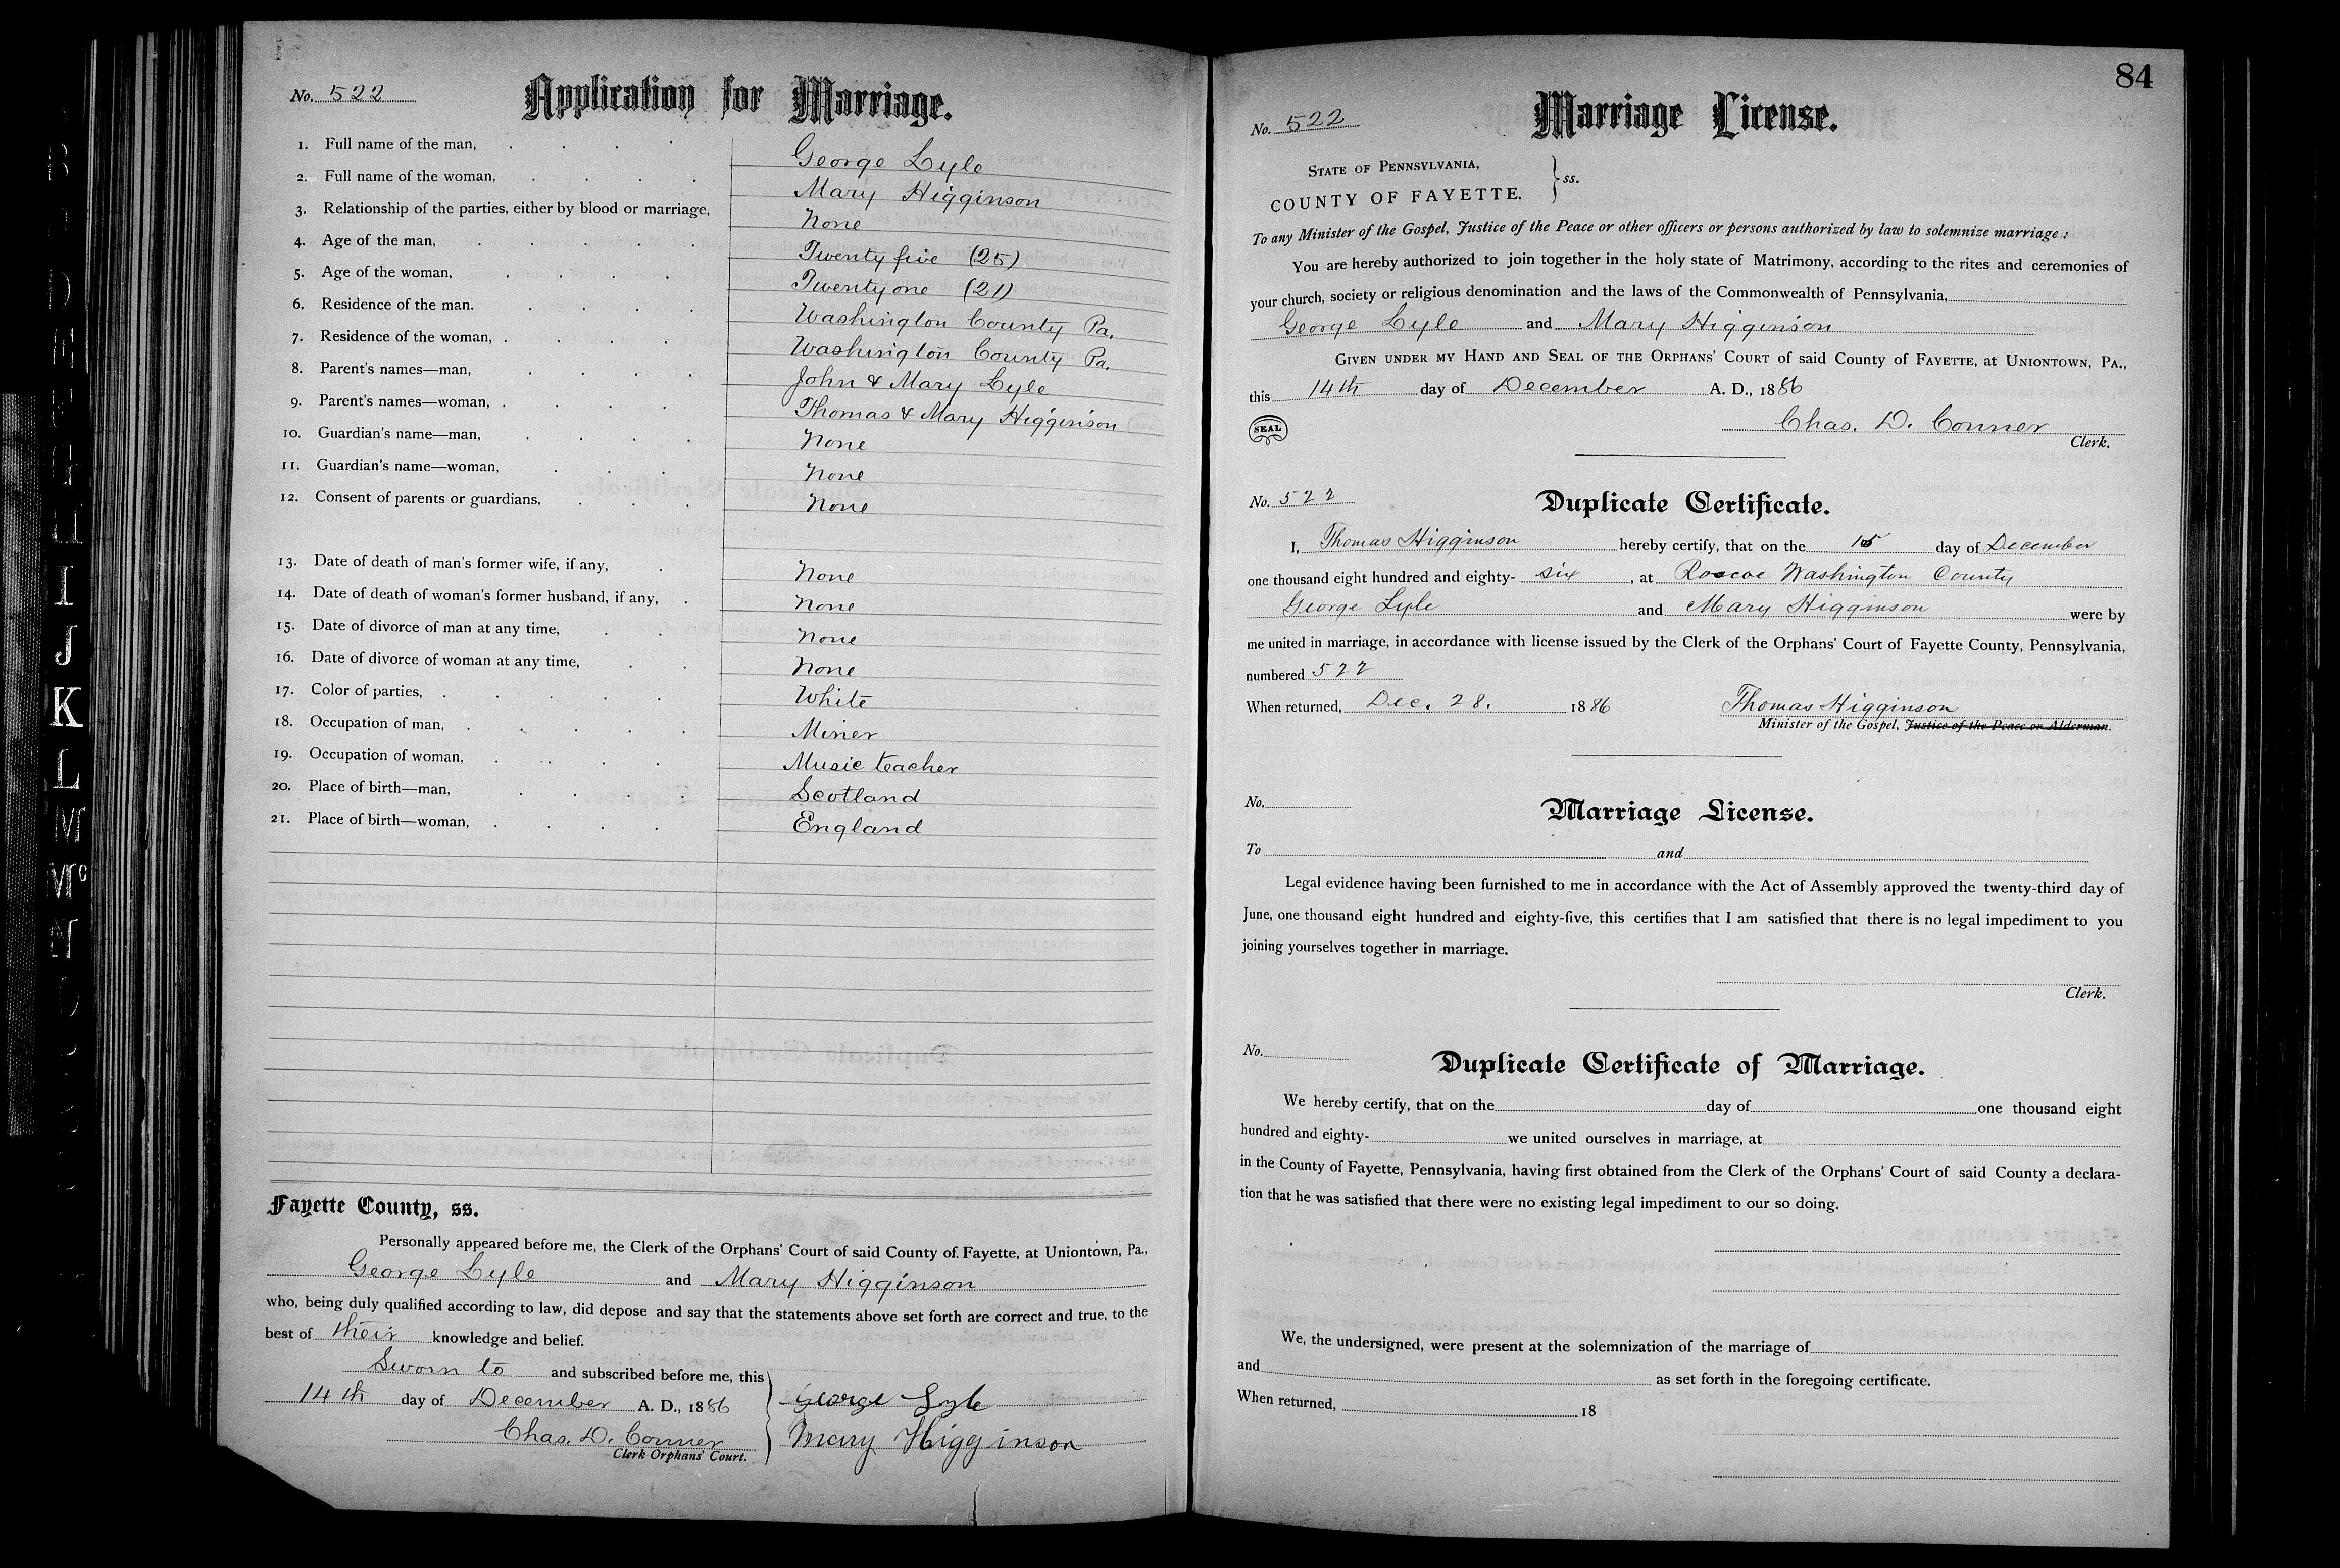 No. 522 Application for Marriage.
1. Full name of the man, George Lyle
2. Full name of the woman, Mary Higginson
3. Relationship of the parties, either by blood or marriage, None
4. Age of the man, Twenty five (25)
5. Age of the woman, Twenty one (21)
6. Residence of the man. Washington County Pa.
7. Residence of the woman, Washington County Pa.
8. Parent's names—man, John & Mary Lyle
9. Parent's names—woman, Thomas & Mary Higginson
10. Guardian's name—man, None
11. Guardian's name—woman, None
12. Consent of parents or guardians, None
13. Date of death of man's former wife, if any, None
14. Date of death of woman's former husband, if any, None
15. Date of divorce of man at any time, None
16. Date of divorce of woman at any time, None
17. Color of parties, White
18. Occupation of man, Miner
19. Occupation of woman, Music teacher
20. Place of birth—man, Scotland
21. Place of birth—woman, England
Fayette County, ss.
Personally appeared before me, the Clerk of the Orphans' Court of said County of Fayette, at Uniontown, Pa.,
George Lyle and Mary Higginson
who, being duly qualified according to law, did depose and say that the statements above set forth are correct and true, to the
best of their knowledge and belief.
Sworn to and subscribed before me, this
14th day of December A. D., 1886 George Lyle
Chas. D. Conner Mary Higginson
Clerk Orphans' Court.
84
No. 522 Marriage License.
STATE OF PENNSYLVANIA,
COUNTY OF FAYETTE. } ss.
To any Minister of the Gospel, Justice of the Peace or other officers or persons authorized by law to solemnize marriage :
You are hereby authorized to join together in the holy state of Matrimony, according to the rites and ceremonies of
your church, society or religious denomination and the laws of the Commonwealth of Pennsylvania,
George Lyle and Mary Higginson
GIVEN UNDER MY HAND AND SEAL OF THE ORPHANS' COURT of said County of FAYETTE, at UNIONTOWN, PA.,
this 14th day of December A. D., 1886
SEAL Chas. D. Conner
Clerk.
No. 522 Duplicate Certificate.
I, Thomas Higginson hereby certify, that on the 15 day of December
one thousand eight hundred and eighty- six, at Roscoe Washington County
George Lyle and Mary Higginson were by
me united in marriage, in accordance with license issued by the Clerk of the Orphans' Court of Fayette County, Pennsylvania,
numbered 522
When returned, Dec. 28. 1886 Thomas Higginson
Minister of the Gospel, Justice of the Peace or Alderman.
No. Marriage License.
To and
Legal evidence having been furnished to me in accordance with the Act of Assembly approved the twenty-third day of
June, one thousand eight hundred and eighty-five, this certifies that I am satisfied that there is no legal impediment to you
joining yourselves together in marriage.
Clerk.
No. Duplicate Certificate of Marriage.
We hereby certify, that on the day of one thousand eight
hundred and eighty- we united ourselves in marriage, at
in the County of Fayette, Pennsylvania, having first obtained from the Clerk of the Orphans' Court of said County a declara-
tion that he was satisfied that there were no existing legal impediment to our so doing.
We, the undersigned, were present at the solemnization of the marriage of
and as set forth in the foregoing certificate.
When returned, 18
I
J
K
L
M
Mc
N